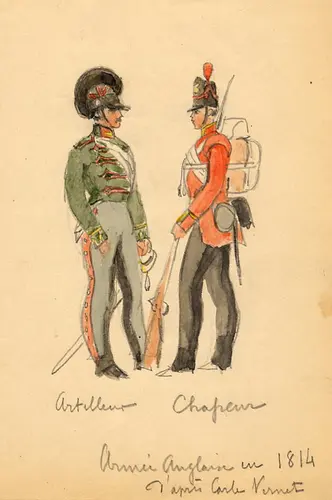 Artilleur Chasseur
Armée Anglaise en 1814
d'après Carle Vernet